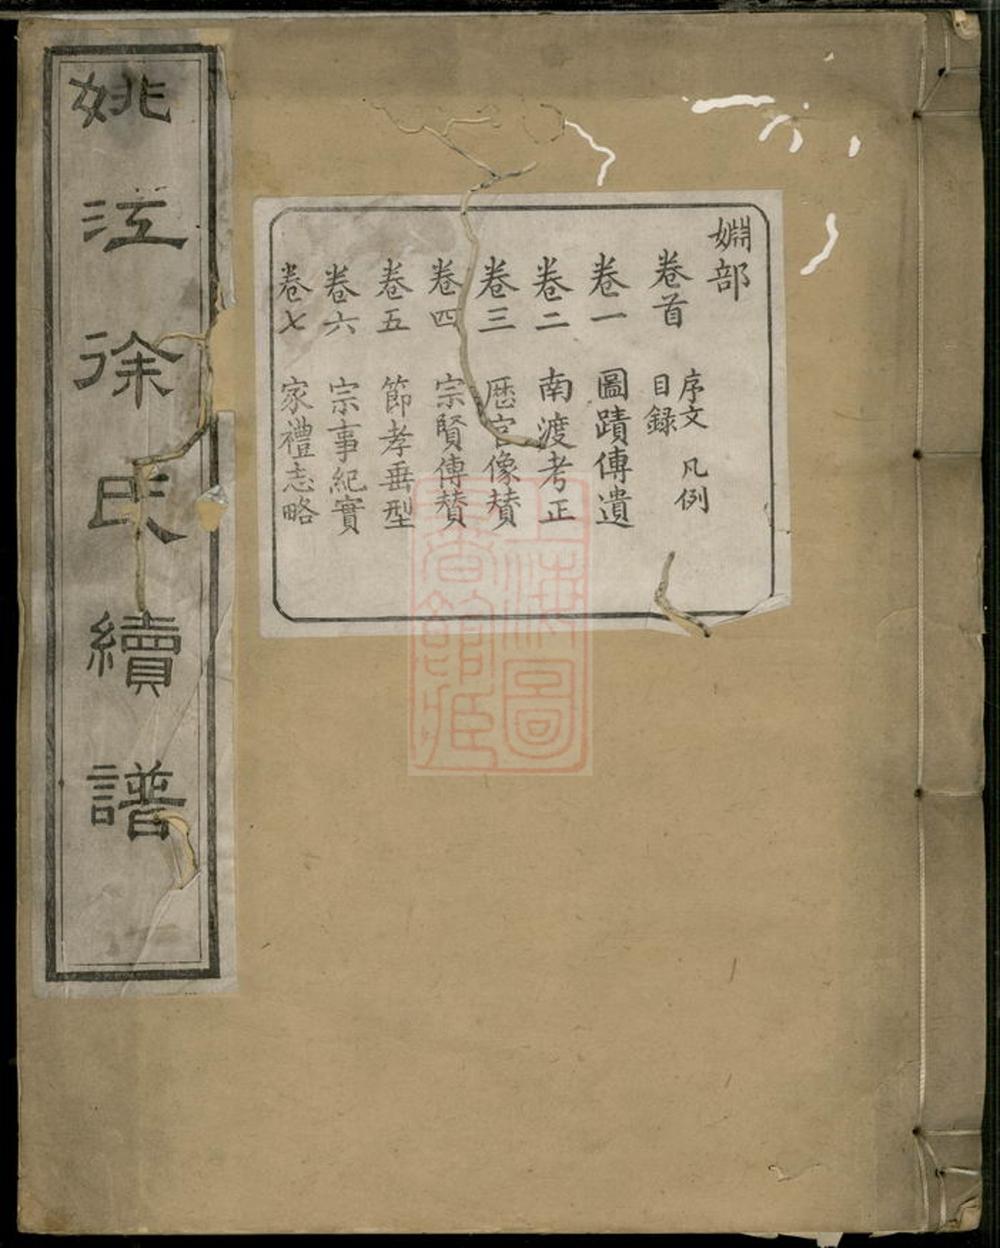 姚江徐氏續譜
婣部
卷首 序文 凡例
目錄
卷一 圖蹟傳遺
卷二 南渡考正
卷三 歷官像賛
卷四 宗賢傳賛
卷五 節孝垂型
卷六 宗事紀實
卷七 家禮志略
上海圖
書館藏